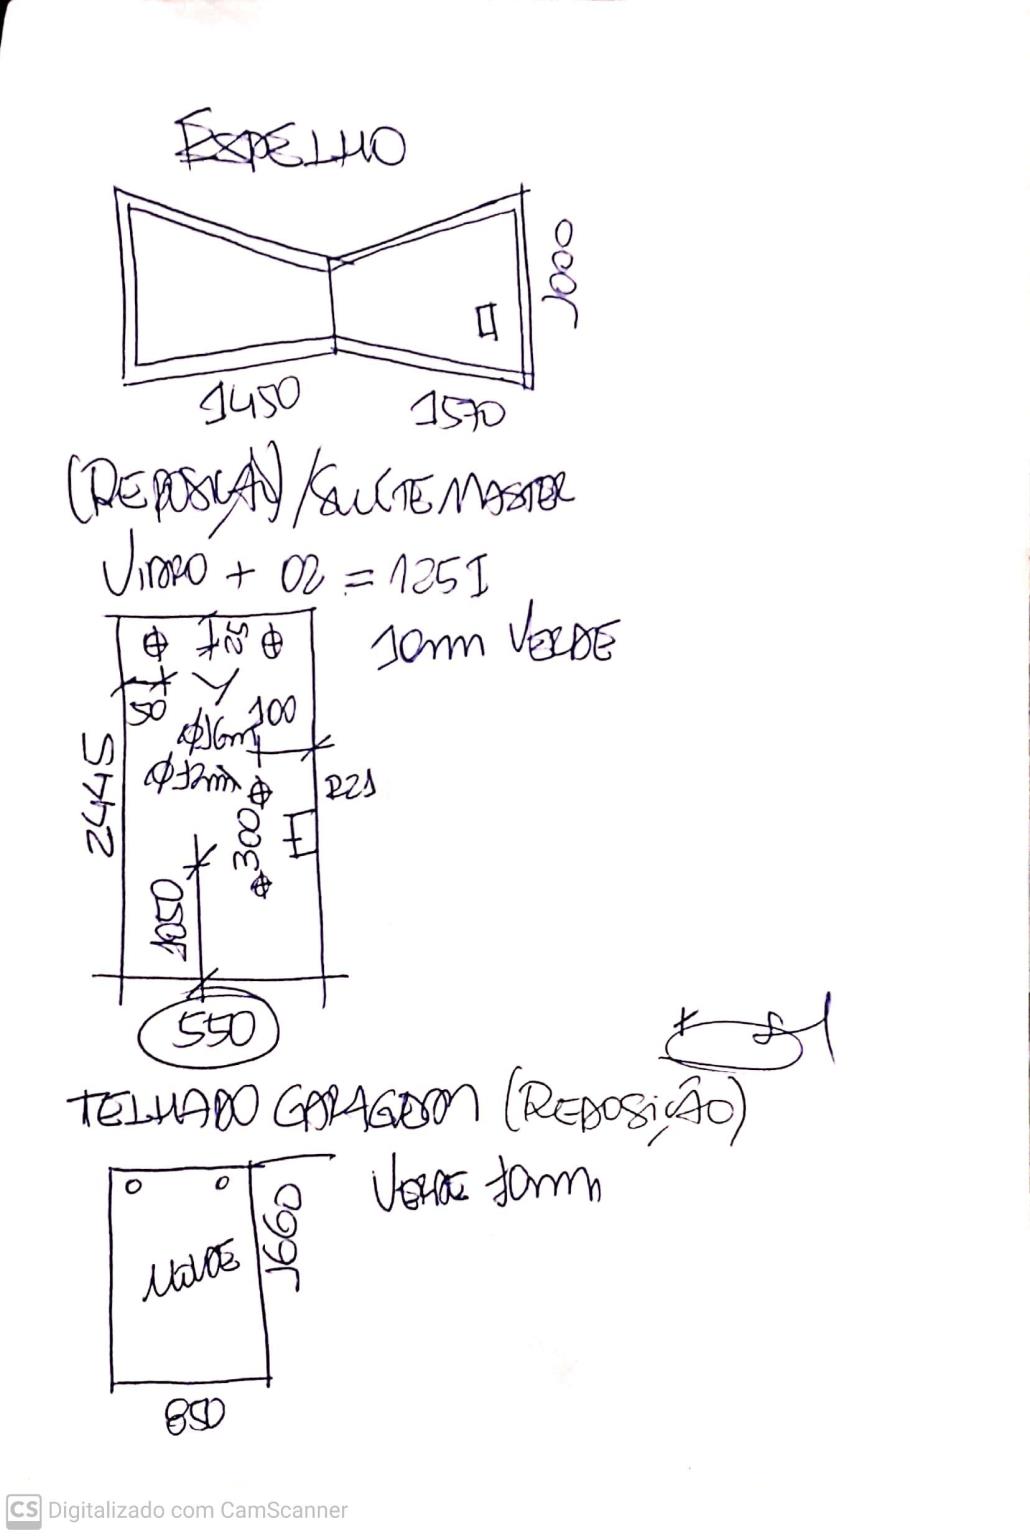 ESPELHO
1000
1450
1570
(REPOSIÇÃO) / SUÍTE MASTER
VIDRO + 02 = 125I
10mm VERDE
52
50
100
Ø16m
Ø12mm
R21
2445
300
1050
550
TELHADO GARAGEM (REPOSIÇÃO)
VERDE 10mm
1660
MOLDE
850
CS Digitalizado com CamScanner